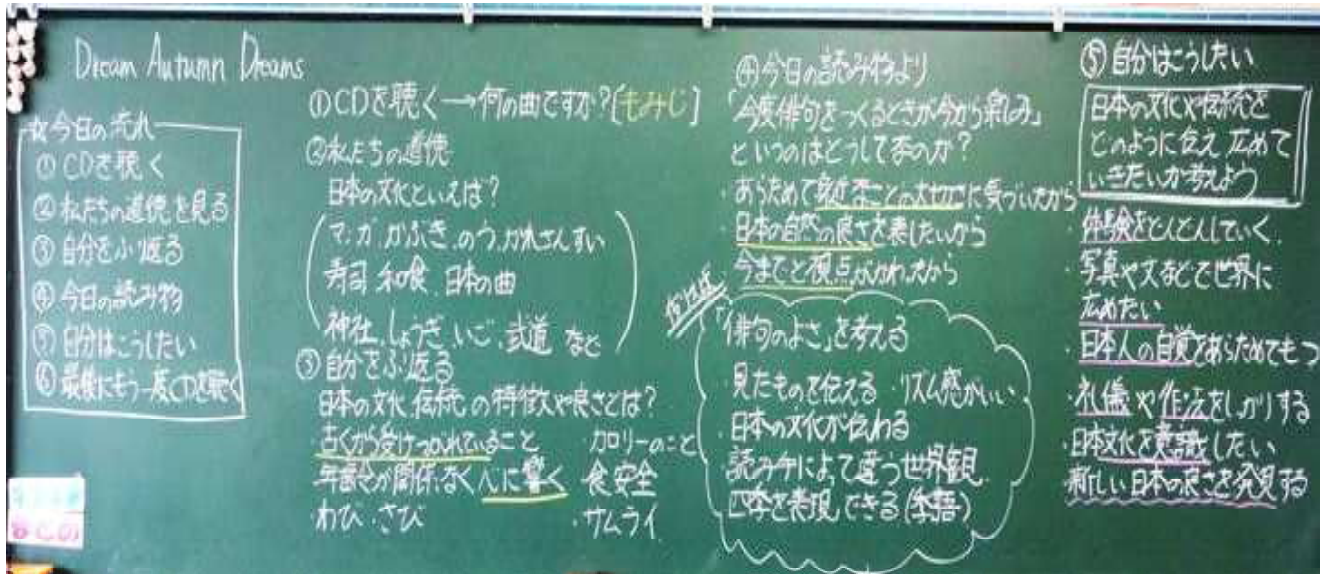 Dream Autumn Dreams
☆今日の流れ
① CDを聴く
② 私たちの道徳を見る
③ 自分をふり返る
④ 今日の読み物
⑤ 自分はこうしたい
⑥ 最後にもう一度CDを聴く
① CDを聴く→何の曲ですか?[もみじ]
②私たちの道徳
日本の文化といえば?
マンガ.かぶき.のう.かれさんすい
寿司 和食.日本の曲
神社.しょうぎ.いご.武道 など
③自分をふり返る
日本の文化,伝統の特徴や良さとは?
・古くから受けつがれていること
・カロリーのこと
・年齢が関係なく心に響く
・食安全
・わび・さび
・サムライ
④今日の読み物より
「今度俳句をつくるときが今から楽しみ」
というのはどうしてなのか?
・あらためて身近なことの大切さに気づいたから
・日本の自然の良さを表したいから
・今までと視点がかわったから
「俳句のよさ」を考える
・見たものを伝える ・リズム感がいい
・日本の文化が伝わる
・読み手によって違う世界観
・四季を表現できる(季語)
⑤自分はこうしたい
日本の文化や伝統を
どのように伝え,広めて
いきたいか考えよう
・体験をどんどんしていく.
・写真や文などで世界に
広めたい
・日本人の自覚をあらためてもつ
・礼儀や作法をしっかりする
・日本文化を意識したい
・新しい日本の良さを発見する